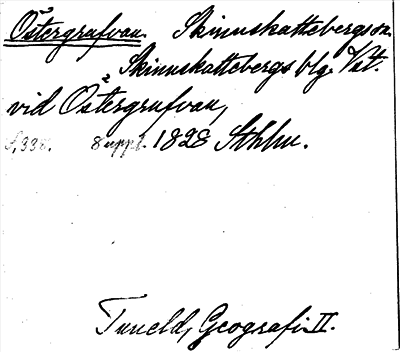 Östergrufvan. Skinnskattebergs sn.
Skinnskattebergs blg. Vstl.
vid Östergrufvan,
s. 338. 8 uppl. 1828 Sthlm.
Tuneld, Geografi II.